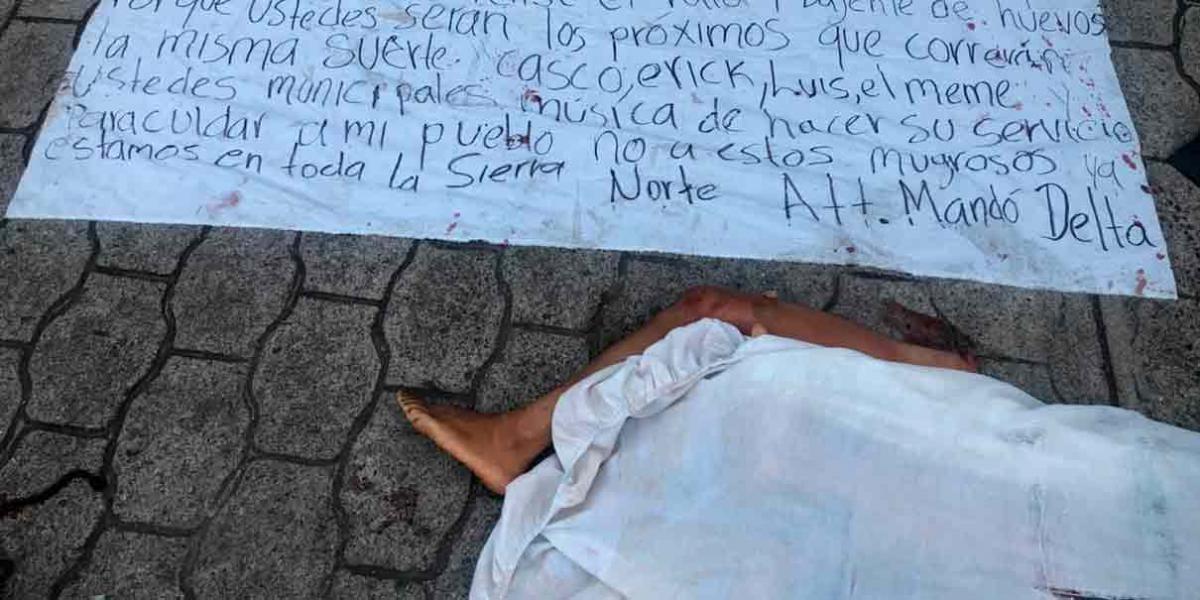 Porque ustedes serán los próximos que correrán
la misma suerte. Casco, erick, Luis, el meme y
Ustedes municipales música de hacer su servicio
Para cuidar a mi pueblo no a estos mugrosos ya
estamos en toda la Sierra Norte Att. Mandó Delta